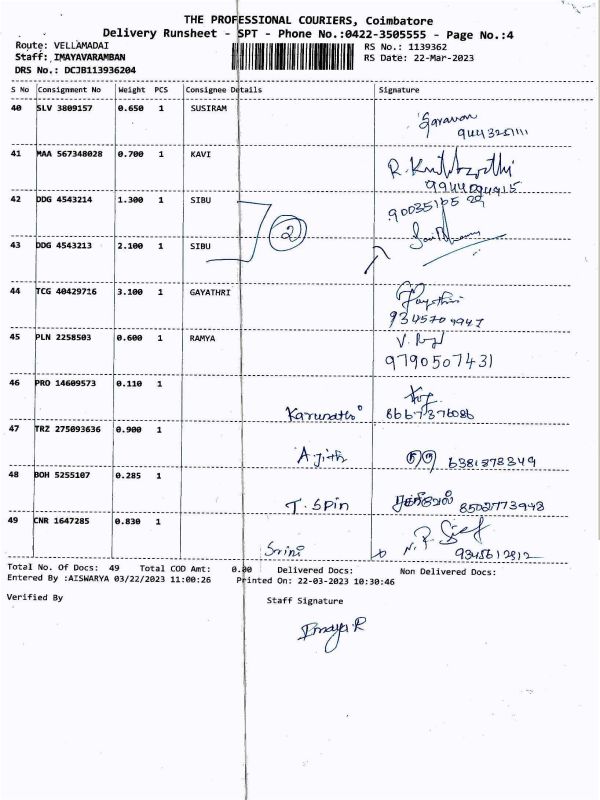 THE PROFESSIONAL COURIERS, Coimbatore
Delivery Runsheet - SPT - Phone No.:0422-3505555 - Page No.:4
Route: VELLAMADAI RS No.: 1139362
Staff: IMAYAVARAMBAN RS Date: 22-Mar-2023
DRS No.: DCJB113936204
S No Consignment No Weight PCS Consignee Details Signature
40 SLV 3809157 0.650 1 SUSIRAM
Saravan
41 MAA 567348028 0.700 1 KAVI
9944094915
42 DDG 4543214 1.300 1 SIBU
2
43 DDG 4543213 2.100 1 SIBU
44 TCG 40429716 3.100 1 GAYATHRI
Gayathri
45 PLN 2258503 0.600 1 RAMYA
9790507431
46 PRO 14609573 0.110 1
8667876086
47 TRZ 275093636 0.900 1
Ajith 6381878349
48 BOH 5255107 0.285 1
T. Spin 8502773948
49 CNR 1647285 0.830 1
Srini 9345612812
Total No. Of Docs: 49 Total COD Amt: 0.00 Delivered Docs: Non Delivered Docs:
Entered By :AISWARYA 03/22/2023 11:00:26 Printed On: 22-03-2023 10:30:46
Verified By Staff Signature
Imaya.R